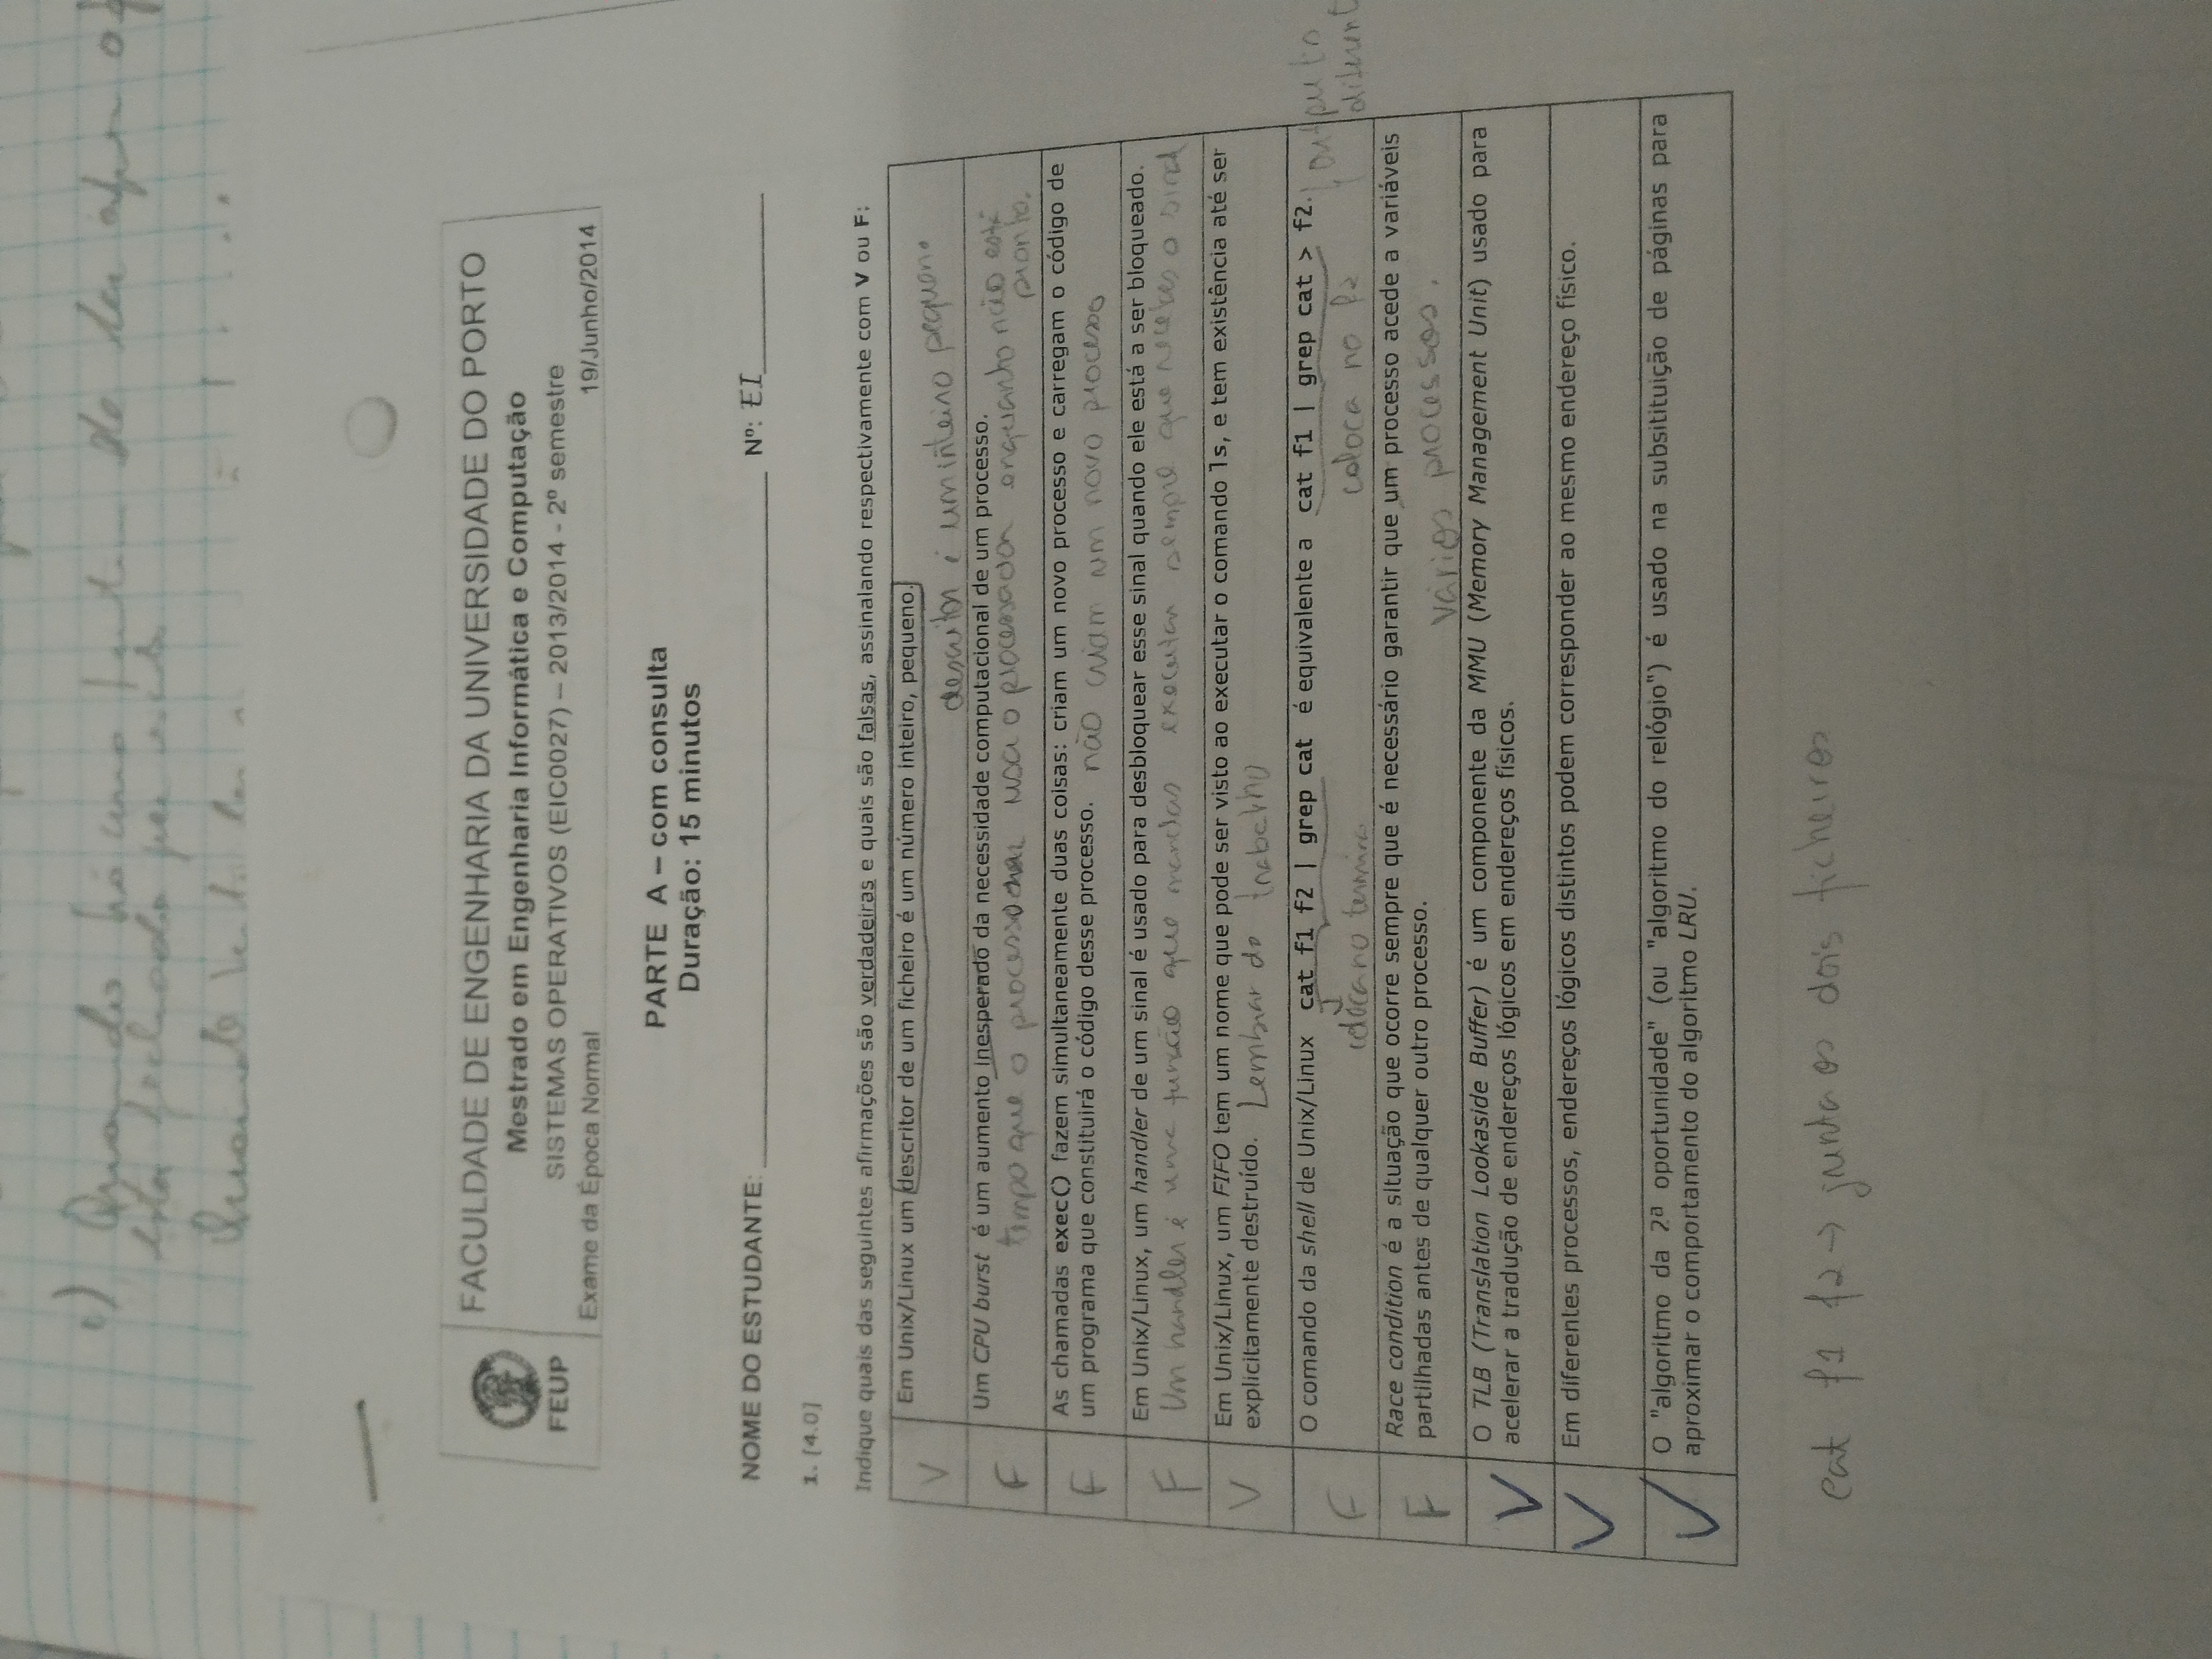 c) Quando há uma de ler após o
está fechado
Quando
FEUP
FACULDADE DE ENGENHARIA DA UNIVERSIDADE DO PORTO
Mestrado em Engenharia Informática e Computação
SISTEMAS OPERATIVOS (EIC0027) – 2013/2014 - 2º semestre
Exame da Época Normal 19/Junho/2014
PARTE A – com consulta
Duração: 15 minutos
NOME DO ESTUDANTE: Nº: EI
1. [4.0]
Indique quais das seguintes afirmações são verdadeiras e quais são falsas, assinalando respectivamente com V ou F:
V Em Unix/Linux um descritor de um ficheiro é um número inteiro, pequeno.
descritor é um inteiro pequeno
Um CPU burst é um aumento inesperado da necessidade computacional de um processo.
F tempo que o usa o processador enquanto não está
pronto.
As chamadas exec() fazem simultaneamente duas coisas: criam um novo processo e carregam o código de
F um programa que constituirá o código desse processo. não criam um novo processo
Em Unix/Linux, um handler de um sinal é usado para desbloquear esse sinal quando ele está a ser bloqueado.
F Um handler é uma função que mandas executar sempre que recebes o sinal
Em Unix/Linux, um FIFO tem um nome que pode ser visto ao executar o comando ls, e tem existência até ser
V explicitamente destruído. Lembrar do trabalho
O comando da shell de Unix/Linux cat f1 f2 | grep cat é equivalente a cat f1 | grep cat > f2. outputs
F coloca no coloca no f2
Race condition é a situação que ocorre sempre que é necessário garantir que um processo acede a variáveis
F partilhadas antes de qualquer outro processo.
vários processos.
O TLB (Translation Lookaside Buffer) é um componente da MMU (Memory Management Unit) usado para
V acelerar a tradução de endereços lógicos em endereços físicos.
V Em diferentes processos, endereços lógicos distintos podem corresponder ao mesmo endereço físico.
O "algoritmo da 2ª oportunidade" (ou "algoritmo do relógio") é usado na subsitituição de páginas para
V aproximar o comportamento do algoritmo LRU.
cat f1 f2 → junta os dois ficheiros